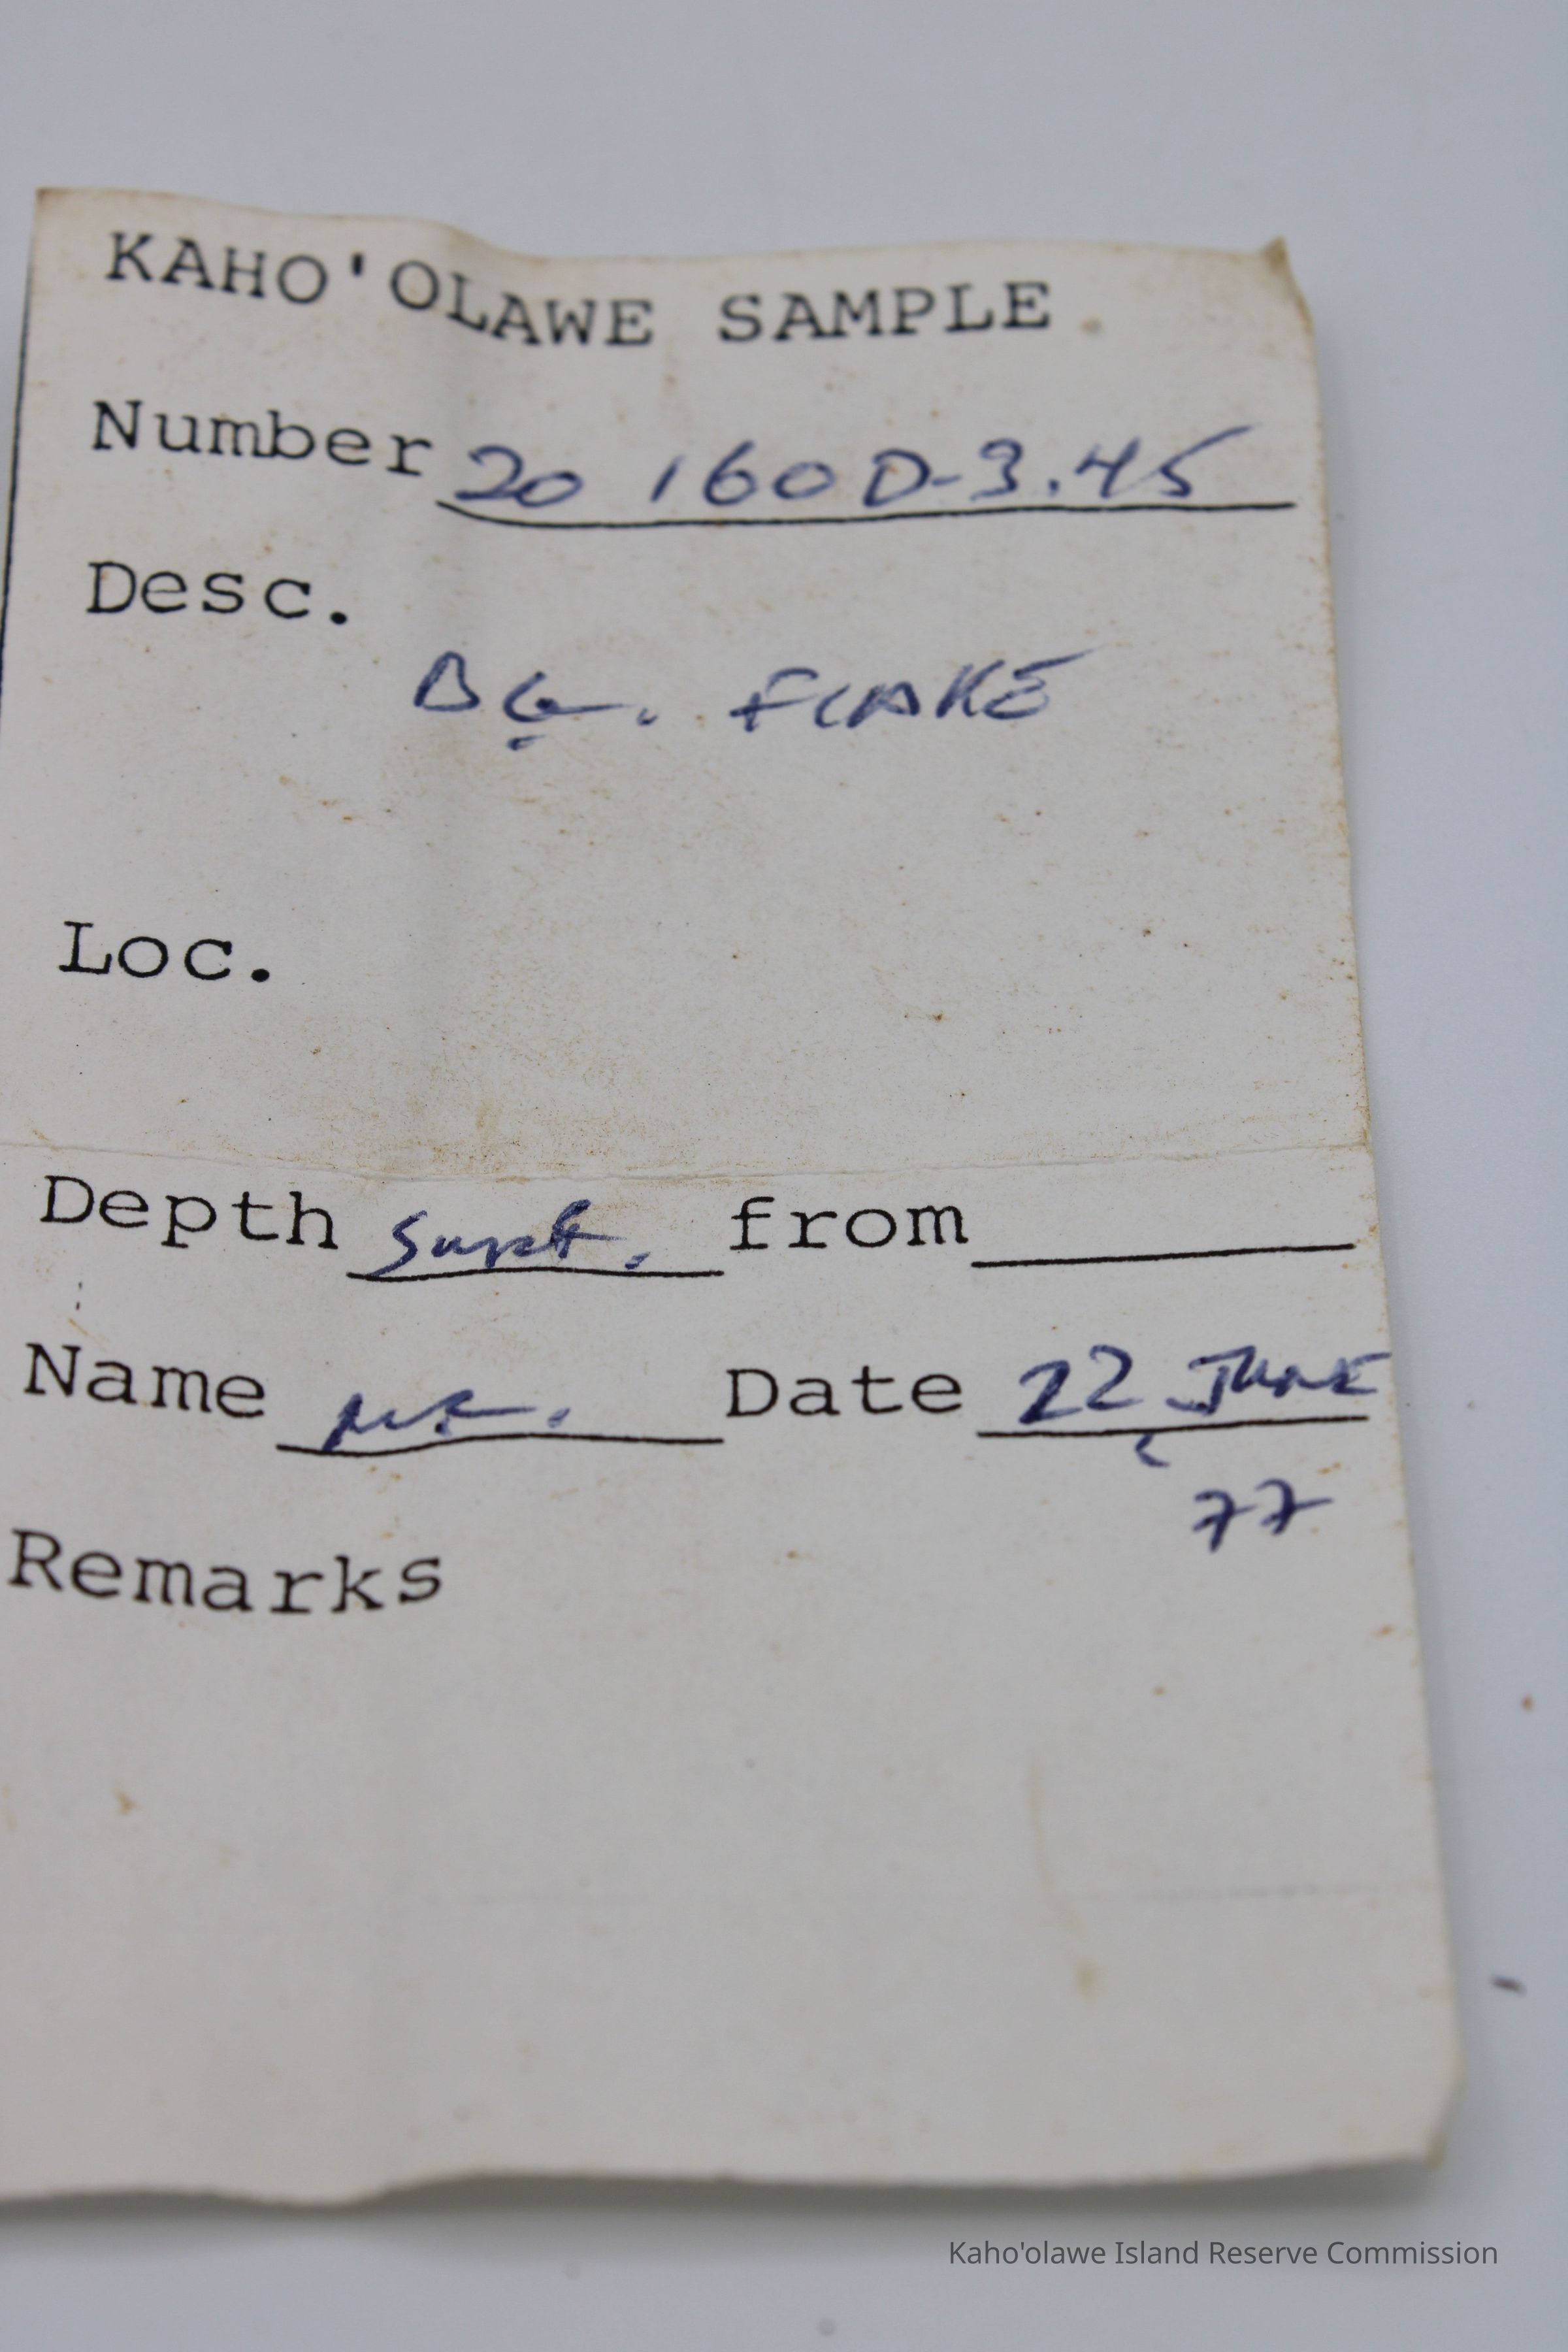 KAHO'OLAWE SAMPLE
Number 20 160 D-3.45
Desc.
BG. FLAKE
Loc.
Depth Surf. from
Name Date 22 JUNE
77
Remarks
Kaho'olawe Island Reserve Commission